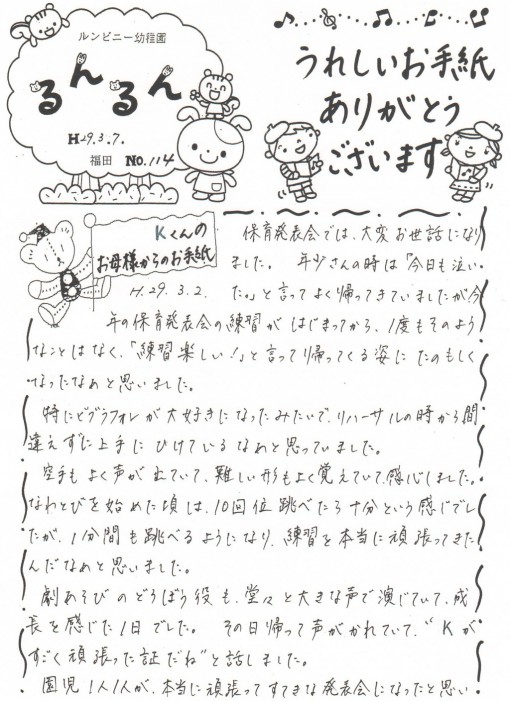 ルンビニー幼稚園
るんるん
H29.3.7.
福田 No.114
うれしいお手紙
ありがとう
ございます
Kくんの
お母様からのお手紙
H.29.3.2.
保育発表会では、大変お世話になり
ました。 年少さんの時は「今日も泣い
た。」と言ってよく帰ってきていましたが今
年の保育発表会の練習がはじまってから、1度もそのよう
なことはなく、「練習楽しい!」と言って帰ってくる姿にたのもしく
なったなぁと思いました。
特にビブラフォンが大好きになったみたいで、リハーサルの時から間
違えずに上手にひけているなぁと思っていました。
空手もよく声が出ていて、難しい形もよく覚えていて感心しました。
なわとびを始めた頃は、10回位跳べたら十分という感じでし
たが、1分間も跳べるようになり、練習を本当に頑張ってきた
んだなぁと思いました。
劇あそびのどろぼう役も、堂々と大きな声で演じていて、成
長を感じた1日でした。 その日帰って声がかれていて、“Kが
すごく頑張った証だね”と話しました。
園児1人1人が、本当に頑張ってすてきな発表会になったと思い